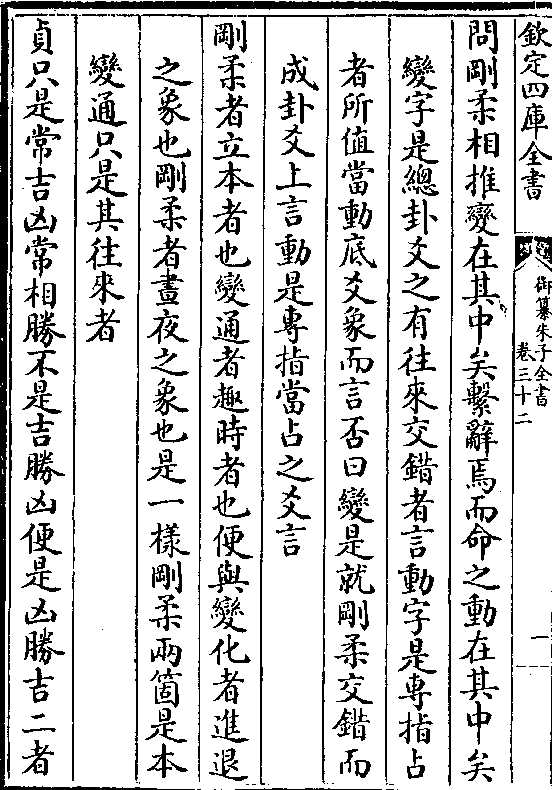 欽定四庫全書
御纂朱子全書
卷三十二
一
問剛柔相推變在其中矣繫辭焉而命之動在其中矣
變字是總卦爻之有往來交錯者言動字是專指占
者所值當動底爻象而言否曰變是就剛柔交錯而
成卦爻上言動是專指當占之爻言
剛柔者立本者也變通者趣時者也便與變化者進退
之象也剛柔者晝夜之象也是一樣剛柔兩箇是本
變通只是其往來者
貞只是常吉凶常相勝不是吉勝凶便是凶勝吉二者